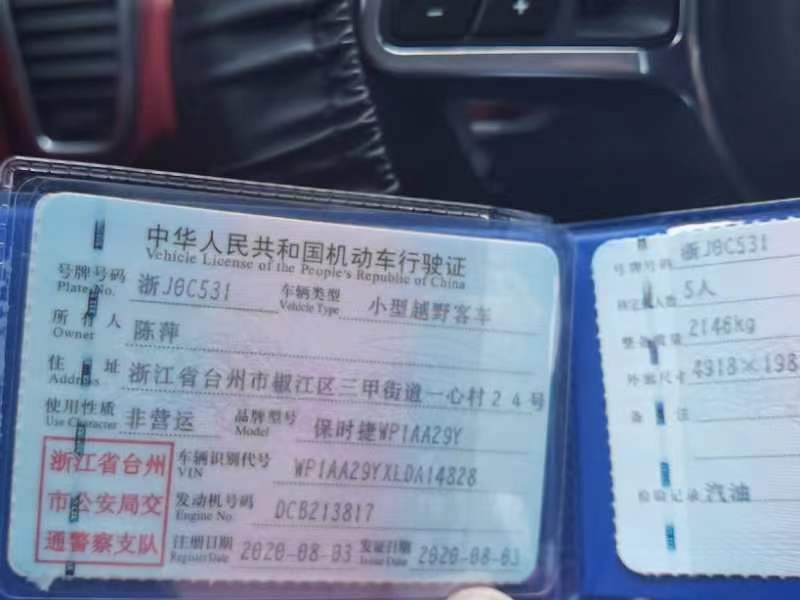 中华人民共和国机动车行驶证
Vehicle License of the People's Republic of China
号牌号码 浙J0C531 车辆类型 小型越野客车
Plate No. Vehicle Type
所有人 陈萍
Owner
住址 浙江省台州市椒江区三甲街道一心村24号
Address
使用性质 非营运 品牌型号 保时捷WP1AA29Y
Use Character Model
浙江省台州
市公安局交
通警察支队
车辆识别代号 WP1AA29YXLDA14828
VIN
发动机号码 DCB213817
Engine No.
注册日期 2020-08-03 发证日期 2020-08-03
Register Date Issue Date
号牌号码 浙J0C531
核定载人数 5人
整备质量 2146kg
外廓尺寸 4918×198
备注
检验记录 汽油
- +